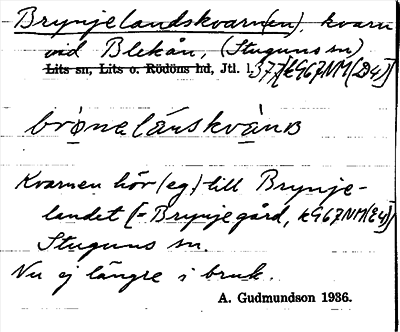 Brynjelandskvarn(en), kvarn
vid Blekån, (Stuguns sn)
Lits sn, Lits o. Rödöns hd, Jtl. l. 377/[k967NM(D4)]
brỳnelánskvà̀nʙ
Kvarnen hör (eg.) till Brynje-
landet [= Brynjegård, k967NM(E4)]
Stuguns sn.
Nu ej längre i bruk.
A. Gudmundson 1936.